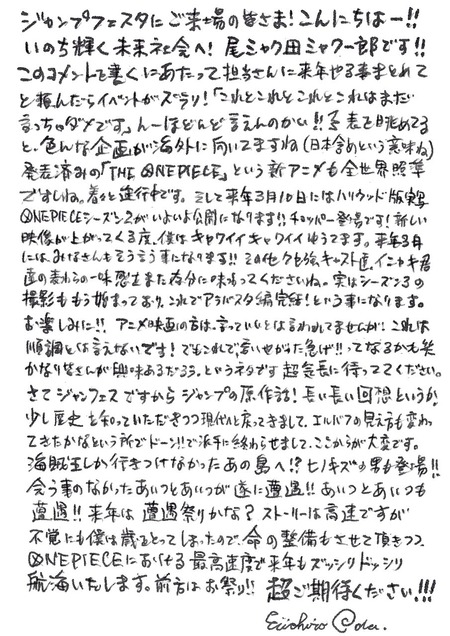 ジャンプフェスタにご来場の皆さま！こんにちはー!!
いのち輝く未来社会へ！尾ミャク田ミャクー郎です!!
このコメントを書くにあたって担当さんに来年やる事まとめて
と頼んだらイベントがズラリ！「これとこれとこれとこれはまだ
言っちゃダメです」んーほとんど言えんのかい!!予表を眺めてる
と、色んな企画が海外に向いてますね(日本含めという意味ね)
発表済みの「THE ONE PIECE」という新アニメも全世界照準
ですしね。着々と進行中です。そして来年3月10日にはハリウッド版実写
ONE PIECEシーズン2がいよいよ公開になります!!チョッパー登場です！新しい
映像が上がってくる度、僕はキャワイイキャワイイゆうてます。来年3月
には、みなさんもそうそう事になります!!その他クセ強キャスト達、イニャキ君
達の変わらの一味感もまた存分に味わってくださいね。実はシーズン3の
撮影ももう始まっており、これでアラバスタ編完結！という事になります。
お楽しみに!!アニメ映画の方は、言っていいとは言われてませんが！これは
順調とは言えないです！でもこれで、安いやがった急げ!!ってなるかも笑
かなり皆さんが興味あるだろう、というネタです 超気長に待っててください。
さてジャンフェスですからジャンプの原作話！長い長い回想というか
少し歴史を知っていただきつつ現代へと戻ってきまして、エルバフの見え方も変わっ
てきたかなという所でドーン!!で派手に終わらせまして、ここからが大変です。
海賊王しか行きつけなかったあの島へ!?ヒノキズの男も登場!!
会う事のなかったあいつとあいつが遂に遭遇!!あいつとあいつも
遭遇!!来年は遭遇祭りかな？ストーリーは高速ですが
不覚にも僕は歳をとってしまったので、命の整備もさせて頂きつつ
ONE PIECEにおける最高速度で来年もズッシリドッシリ
航海いたします。前方はお祭り!! 超ご期待ください!!!
Eiichiro Oda.